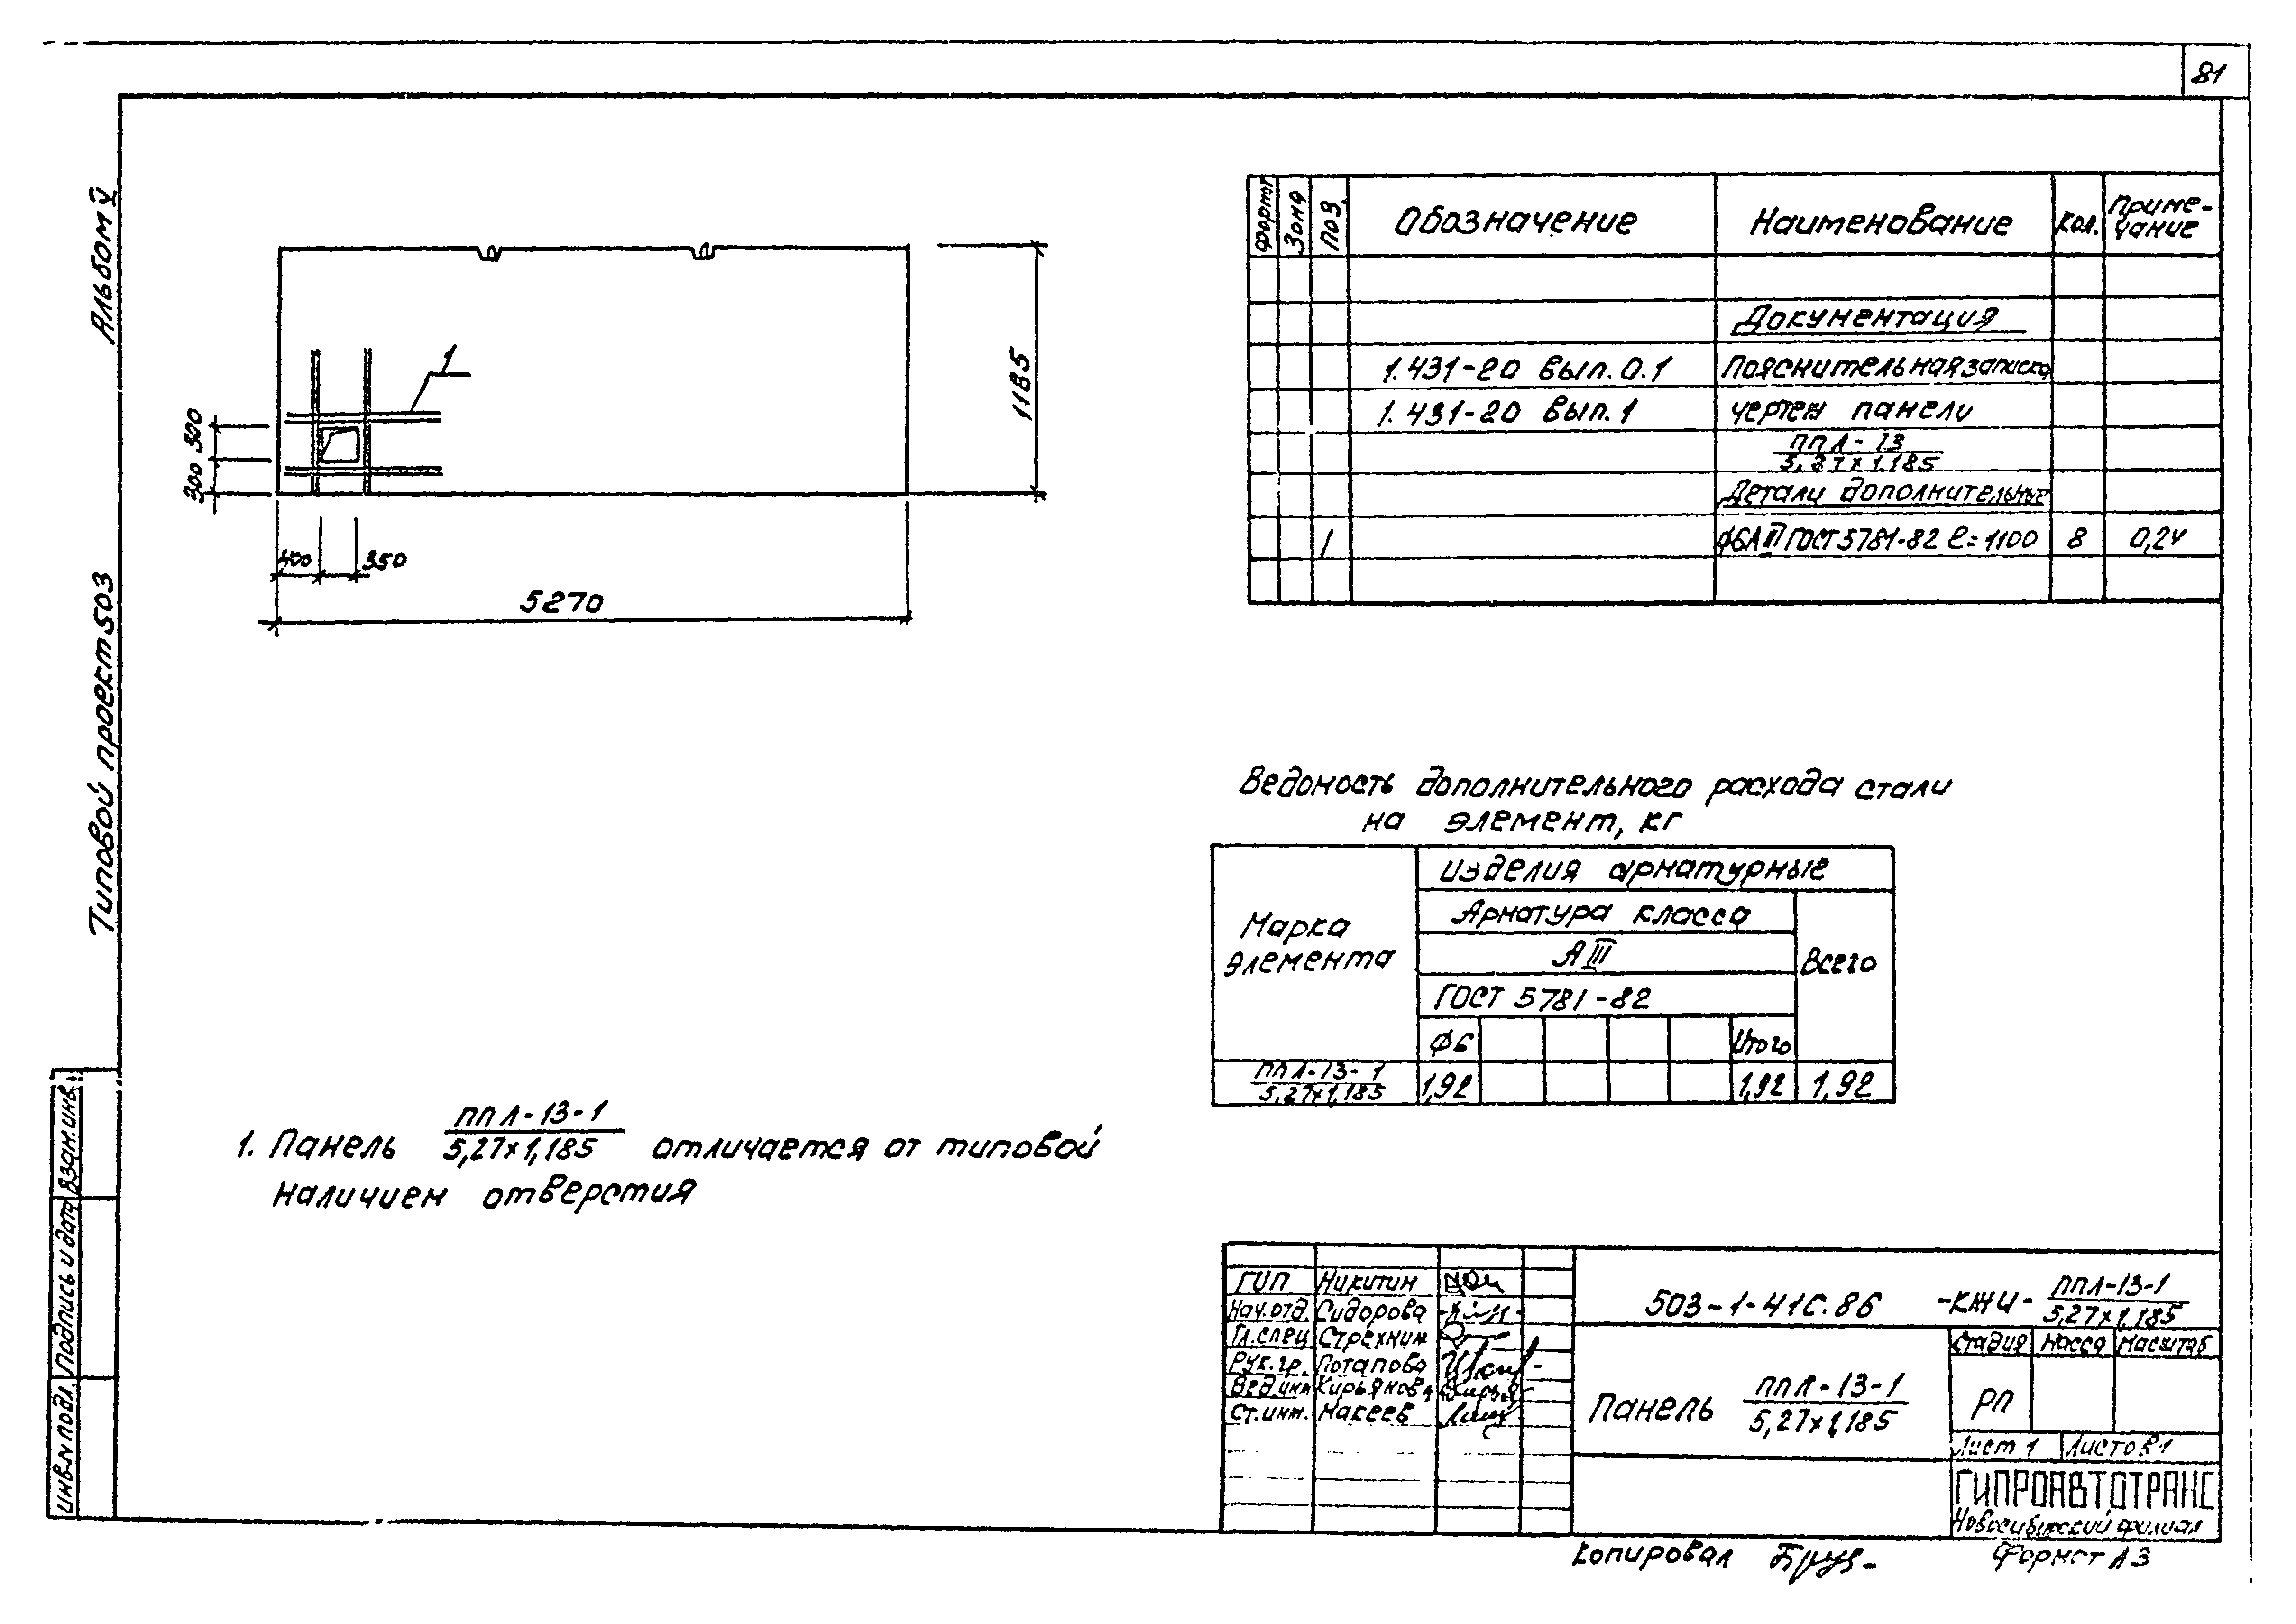 81
Альбом V
Типовой проект 503
1
300
300
400
350
5270
1185
Формат
Зона
Поз.
Обозначение
Наименование
Кол.
Приме-
чание
Документация
1.431-20 вып. 0.1
Пояснительная записка
1.431-20 вып. 1
чертеж панели
ППЛ-13
5,27х1.185
Детали дополнительные
1
ф6АIII ГОСТ 5781-82 l=1100
8
0,24
Ведомость дополнительного расхода стали
на элемент, кг
Марка
элемента
Изделия арматурные
Арматура класса
АIII
ГОСТ 5781-82
Всего
ф6
Итого
ППЛ-13-1
5,27х1,185
1,92
1,92
1,92
1. Панель ППЛ-13-1
5,27х1,185 отличается от типовой
наличием отверстия
Взам.инв.
Подпись и дата
Инв.N подл.
ГИП Никитин
Нач.отд. Сидорова
Гл.спец Стрехнин
Рук.гр. Потапова
Вед.инж Кирьянова
Ст.инж. Макеев
503-1-41С.86 -КЖИ- ППЛ-13-1
5,27х1,185
Панель ППЛ-13-1
5,27х1,185
Стадия
Масса
Масштаб
РП
Лист 1
Листов 1
ГИПРОАВТОТРАНС
Новосибирский филиал
Копировал
Формат А3